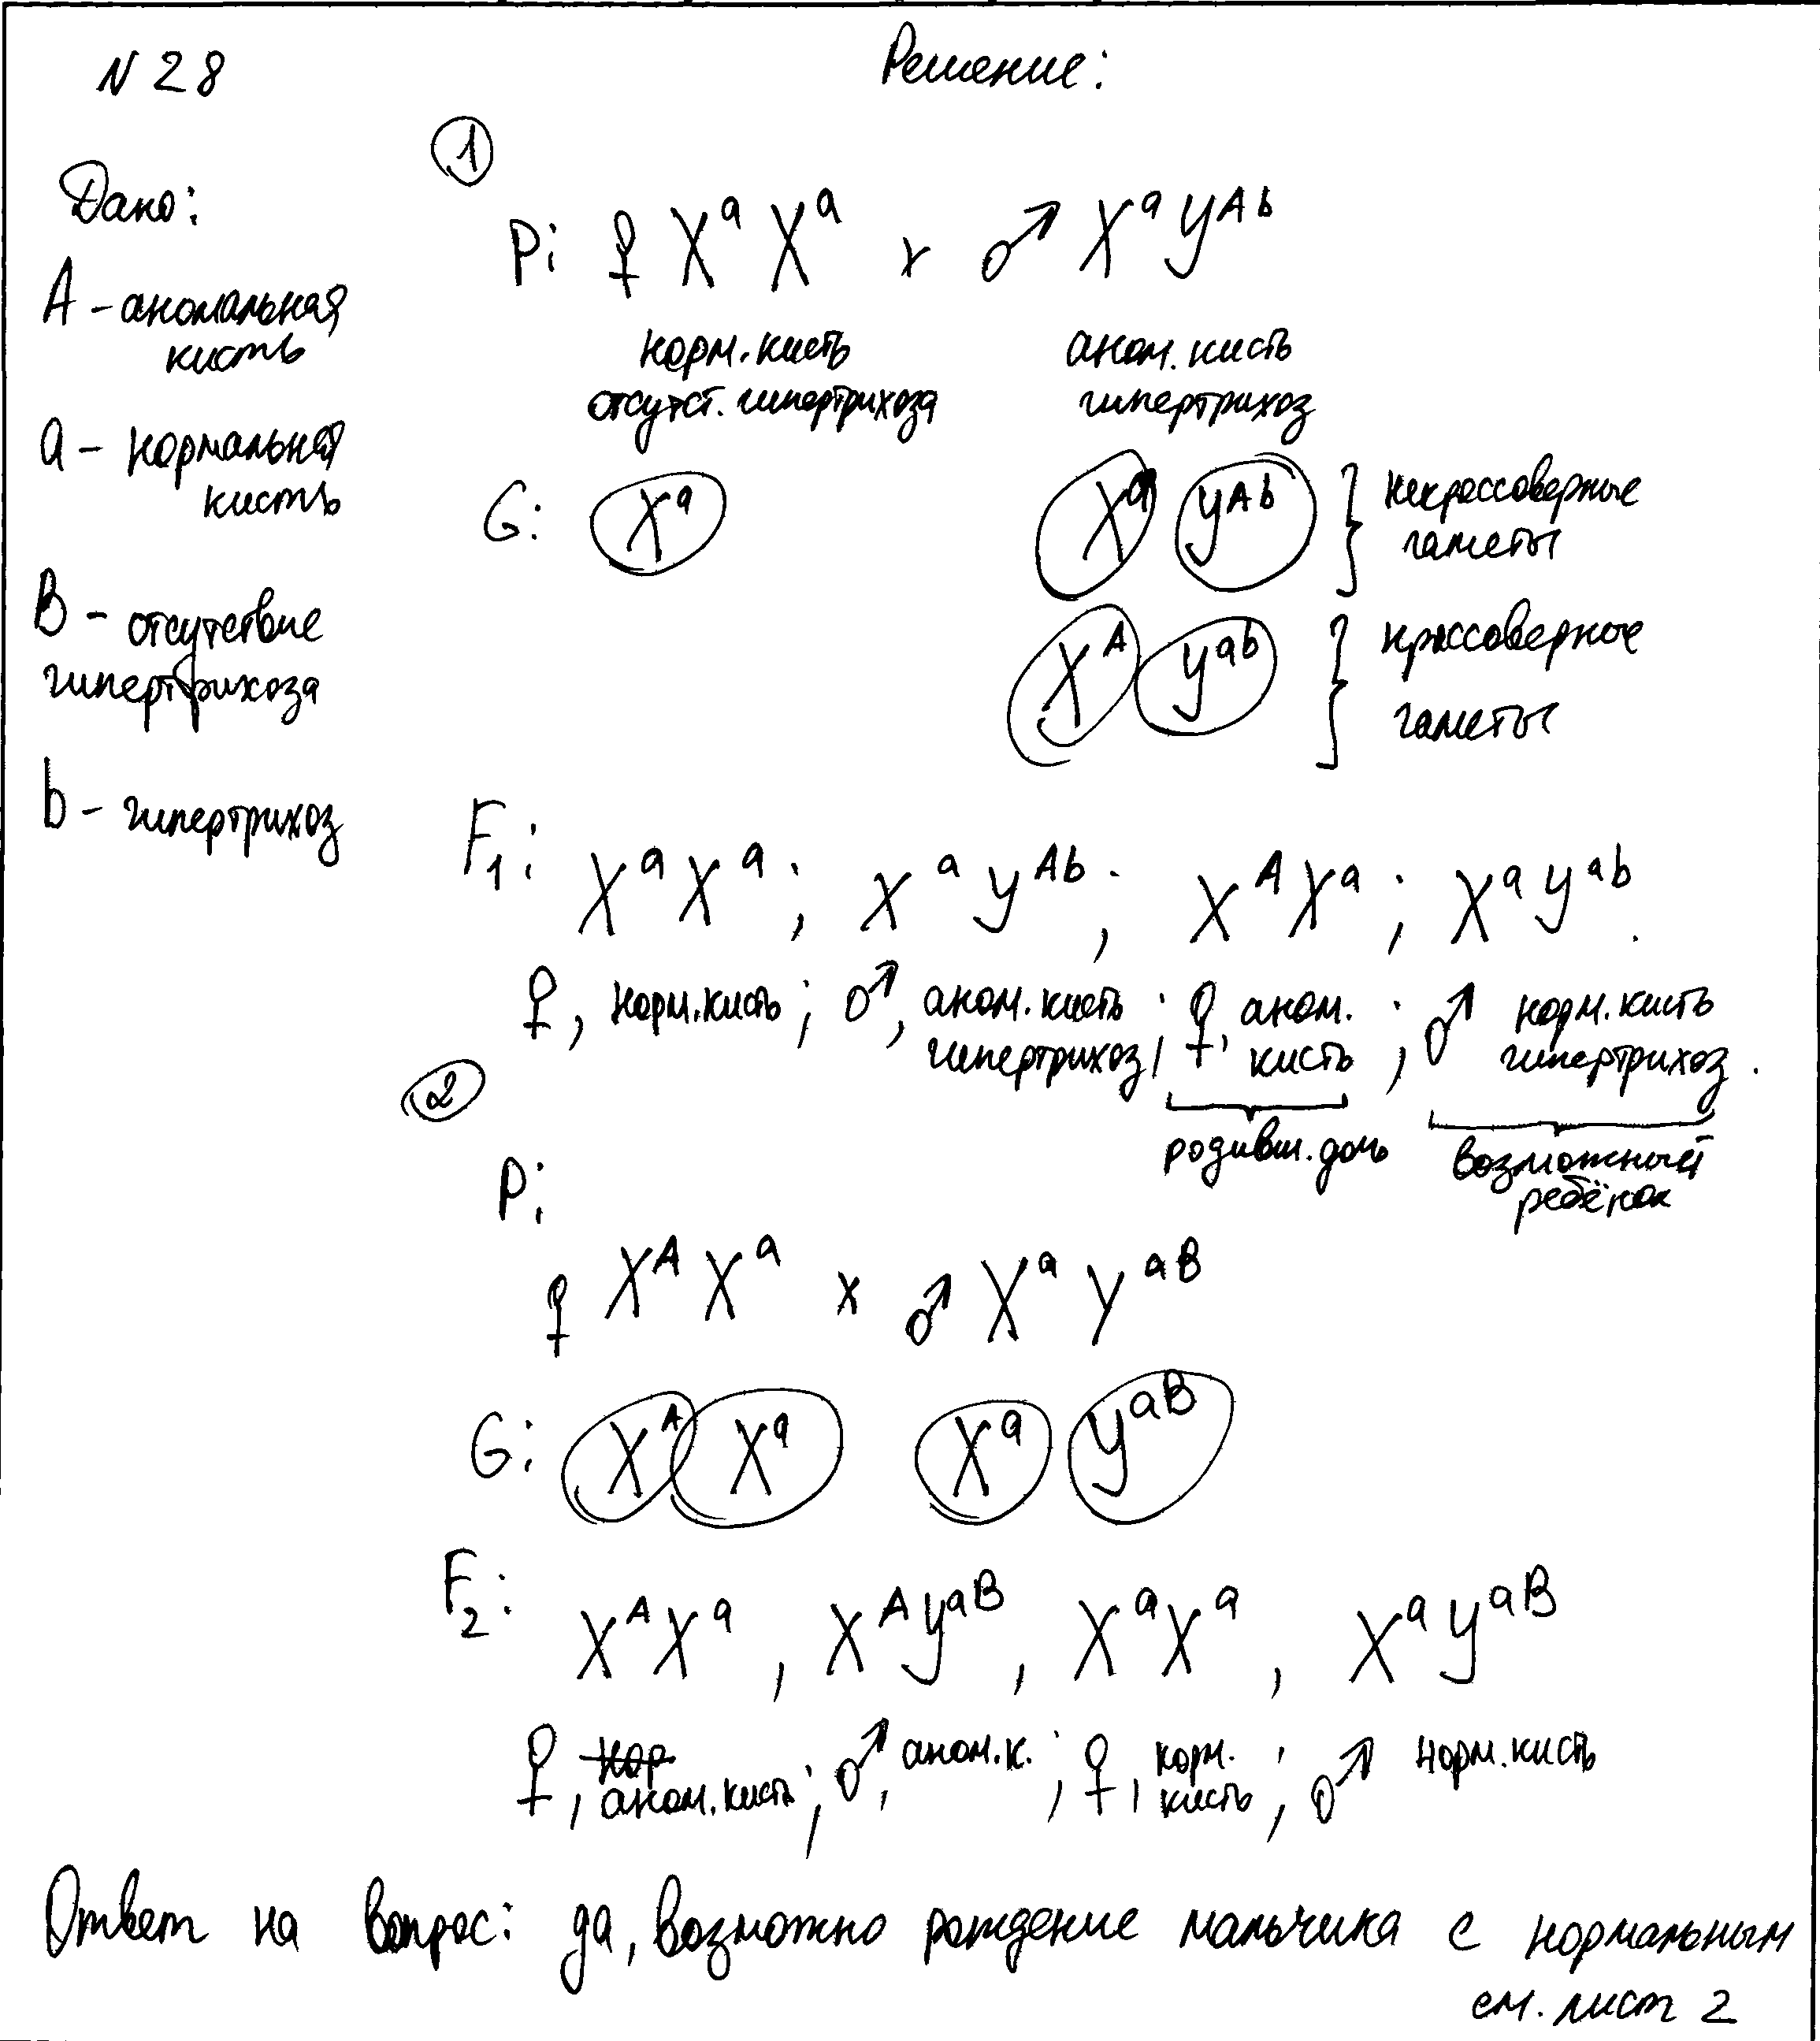 N 28
Решение:
Дано:
A - аномальная
кисть
a - нормальная
кисть
B - отсутствие
гипертрихоза
b - гипертрихоз
①
P: ♀ Xᵃ Xᵃ x ♂ Xᵃ Yᴬᵇ
норм. кисть аном. кисть
отсутст. гипертрихоза гипертрихоз
G: Xᵃ Xᵃ Yᴬᵇ } некроссоверные
гаметы
Xᴬ Yᵃᵇ } кроссоверные
гаметы
F₁: XᵃXᵃ; XᵃYᴬᵇ; XᴬXᵃ; XᵃYᵃᵇ.
♀, норм. кисть; ♂, аном. кисть; ♀, аном.; ♂ норм. кисть
гипертрихоз, кисть гипертрихоз.
родивш. дочь возможный
ребёнок
②
P:
♀ Xᴬ Xᵃ x ♂ Xᵃ Yᵃᴮ
G: Xᴬ Xᵃ Xᵃ Yᵃᴮ
F₂: XᴬXᵃ, XᴬYᵃᴮ, XᵃXᵃ, XᵃYᵃᴮ
♀, нор ♂, аном. к.; ♀, норм. ; ♂ норм. кисть
аном. кисть; кисть
Ответ на вопрос: да, возможно рождение мальчика с нормальным
см. лист 2